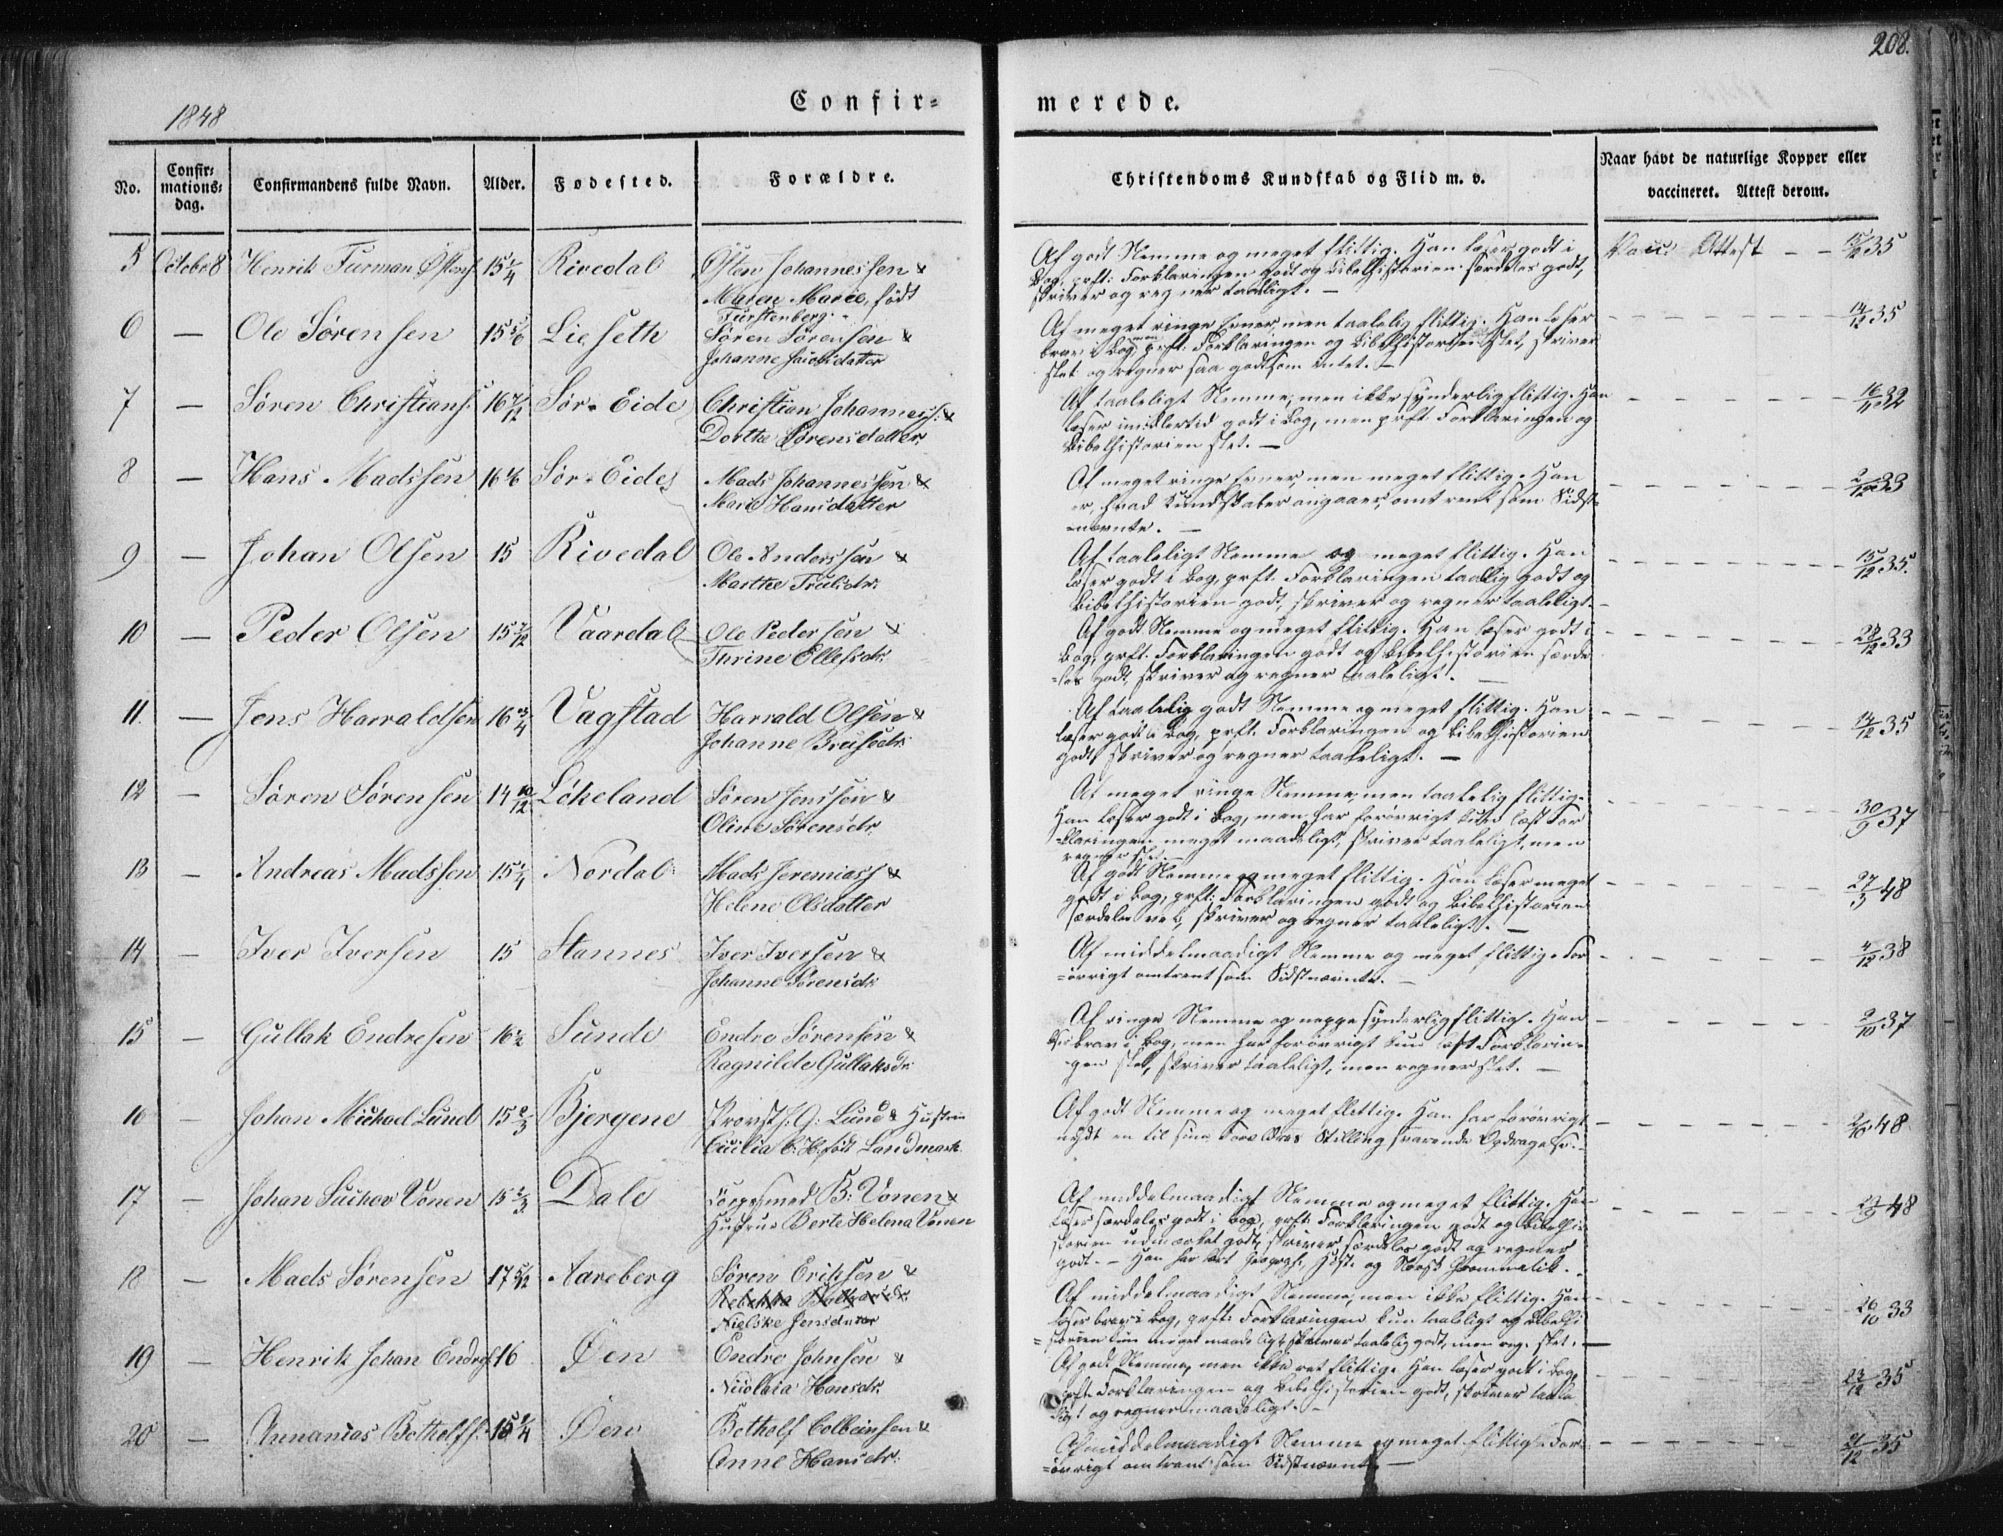 208.
1848
Confir= merede.
No.
Confir=
mations=
dag.
Confirmandens fulde Navn.
Alder.
Fødested.
Forældre.
Christendoms Kundskab og Flid m. v.
Naar havt de naturlige Kopper eller
vaccineret. Attest derom.
5 October 8 Henrik Furman Østens. 15 1/4 Rivedal Østen Johannessen &
Maren Marie, født
Fürstenberg.
Af godt Nemme og meget flittig. Han læser godt i
Bog, prft: Forklaringen godt og Bibelhistorien særdeles godt,
skriver og regner taaleligt. —
Vacc: Attest — — 15/12 35
6 — Ole Sørensen 15 5/6 Lieseth Søren Sørensen &
Johanne Jacobsdatter
Af meget ringe Evner, men taalelig flittig. Han læser
brav i Bog, men prft: Forklaringen og Bibelhistorien slet, skriver
slet og regner saa godt som intet. —
14/12 35
7 — Søren Christians. 16 7/12 Sør-Eide Christian Johanness: &
Dorthe Sørensdatter
Af taaleligt Nemme, men ikke synderlig flittig. Han
læser imidlertid godt i Bog, men prft. Forklaringen og
Bibelhistorien slet. —
16/11 32
8 — Hans Madssen 16 1/6 Sør-Eide Mads Johannessen &
Marie Hansdatter
Af meget ringe Evner, men meget flittig. Han
er, hvad Kundskaber angaaer, omtrent som Sidst-
=nævnte. —
2/12 33
9 — Johan Olsen 15 Rivedal Ole Anderssen &
Marthe Trulsdr.
Af taaleligt Nemme og meget flittig. Han
læser godt i Bog, prft. Forklaringen taalelig godt og
Bibelhistorien godt, skriver og regner taaleligt. —
15/12 35.
10 — Peder Olsen 15 7/12 Vaardal Ole Pedersen &
Thrine Ellefsdr.
Af godt Nemme og meget flittig. Han læser godt i
Bog, prft: Forklaringen godt og Bibelhistorien særde
=les godt, skriver og regner taaleligt. —
28/12 33
11. — Jens Harraldsen 16 3/4 Vagstad Harrald Olsen &
Johanne
Af taalelig godt Nemme og meget flittig. Han
læser godt i Bog, prft. Forklaringen og Bibelhistorien
godt, skriver og regner taaleligt. —
14/12 35
12 — Søren Sørensen 14 10/12 Løkeland Søren Jenssen &
Oline Sørensdr.
Af meget ringe Nemme, men taalelig flittig.
Han læser godt i Bog, men har forøvrigt kun læst For
=klaringen meget maadeligt, skriver taaleligt, men
regner slet. —
30/9 37
13 — Andreas Madssen 15 1/4 Nordal Mads Jeremiass &
Helene Olsdatter
Af godt Nemme og meget flittig. Han læser meget
godt i Bog, prft: Forklaringen godt og Bibelhistorien
særdeles vel, skriver og regner taaleligt. —
27/3 48
14 — Iver Iversen 15 Stannes Iver Iversen &
Johanne Sørensdr.
Af middelmaadigt Nemme og meget flittig. For
=øvrigt omtrent som Sidstnævnte. —
4/12 38
15 — Gullak Endresen 16 1/2 Sunde Endre Sørensen &
Ragnilde Gullaksdr.
Af ringe Nemme og neppe synderlig flittig. Han
brav i Bog, men har forøvrigt kun læst Forklarin=
gen slet, skriver taaleligt, men regner slet. —
9/10 37
16 — Johan Michael Lund 15 2/3 Bjergene Provst J. G: Lund & Hustru
Cecilia C. H. født Landmark
Af godt Nemme og meget flittig. Han har forøvrigt
nydt en til sine Forældres Stilling svarende Opdragelse. —
2/10 48
17 — Johan Vonen 15 2/3 Dale B: Vonen &
Hustrue Berte Helena Vonen
Af middelmaadigt Nemme og meget flittig. Han
læser særdeles godt i Bog, prft. Forklaringen godt og Bibelhi=
storien udmærket godt, skriver særdeles godt og regner
godt. — Han har lært Geograph., Hist. og Norsk Grammatik.
29/9 48
18 — Mads Sørensen 17 5/12 Aareberg Søren Eriksen &
Nielske Jensdatter
Af middelmaadigt Nemme, men ikke flittig. Han
læser brav i Bog, prft. Forklaringen kun taaleligt og Bibelhi
=storien kun meget maadeligt, skriver taalelig godt, men reg. slet. —
26/10 33
19 — Henrik Johan Endres. 16 Øen Endre Johnsen &
Nicolaia Hansdr.
Af godt Nemme, men ikke ret flittig. Han læser godt i Bog,
prft. Forklaringen og Bibelhistorien godt, skriver taale
ligt og regner maadeligt. —
23/12 35
20 — Annanias Botholfs. 15 1/4 Øen Botholf Colbeinsen &
Anne Hansdtr.
Af middelmaadigt Nemme og meget flittig. For=
=øvrigt omtrent som Sidstnævnte. —
21/12 35